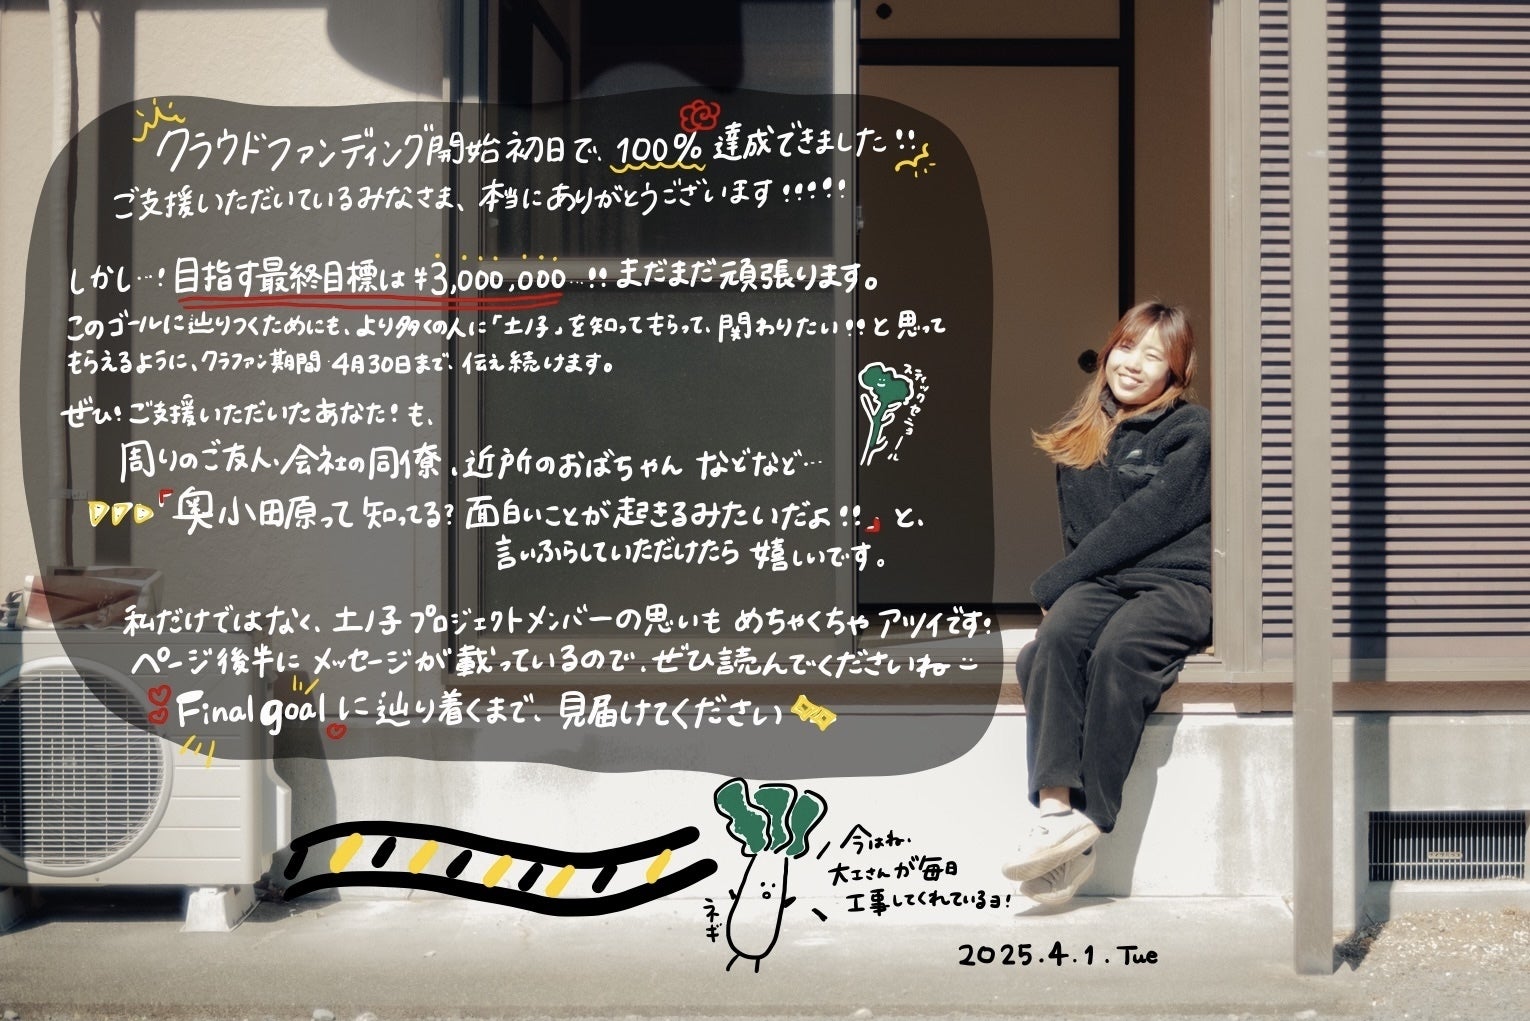 クラウドファンディング開始初日で、100％達成できました!!
ご支援いただいているみなさま、本当にありがとうございます!!!!!
しかし…！目指す最終目標は¥3,000,000…!!まだまだ頑張ります。
このゴールに辿りつくためにも、より多くの人に「土ノ子」を知ってもらって、関わりたい!!と思って
もらえるように、クラファン期間 4月30日まで、伝え続けます。
ぜひ！ご支援いただいたあなた！も、
周りのご友人、会社の同僚、近所のおばちゃん などなど…
「奥小田原って知ってる？面白いことが起きるみたいだよ!!」と、
言いふらしていただけたら嬉しいです。
スティックセニョール
私だけではなく、土ノ子プロジェクトメンバーの思いもめちゃくちゃアツイです！
ページ後半にメッセージが載っているので、ぜひ読んでくださいね
Final goalに辿り着くまで、見届けてください
ネギ
今はね、
大工さんが毎日
工事してくれているヨ！
2025.4.1.Tue